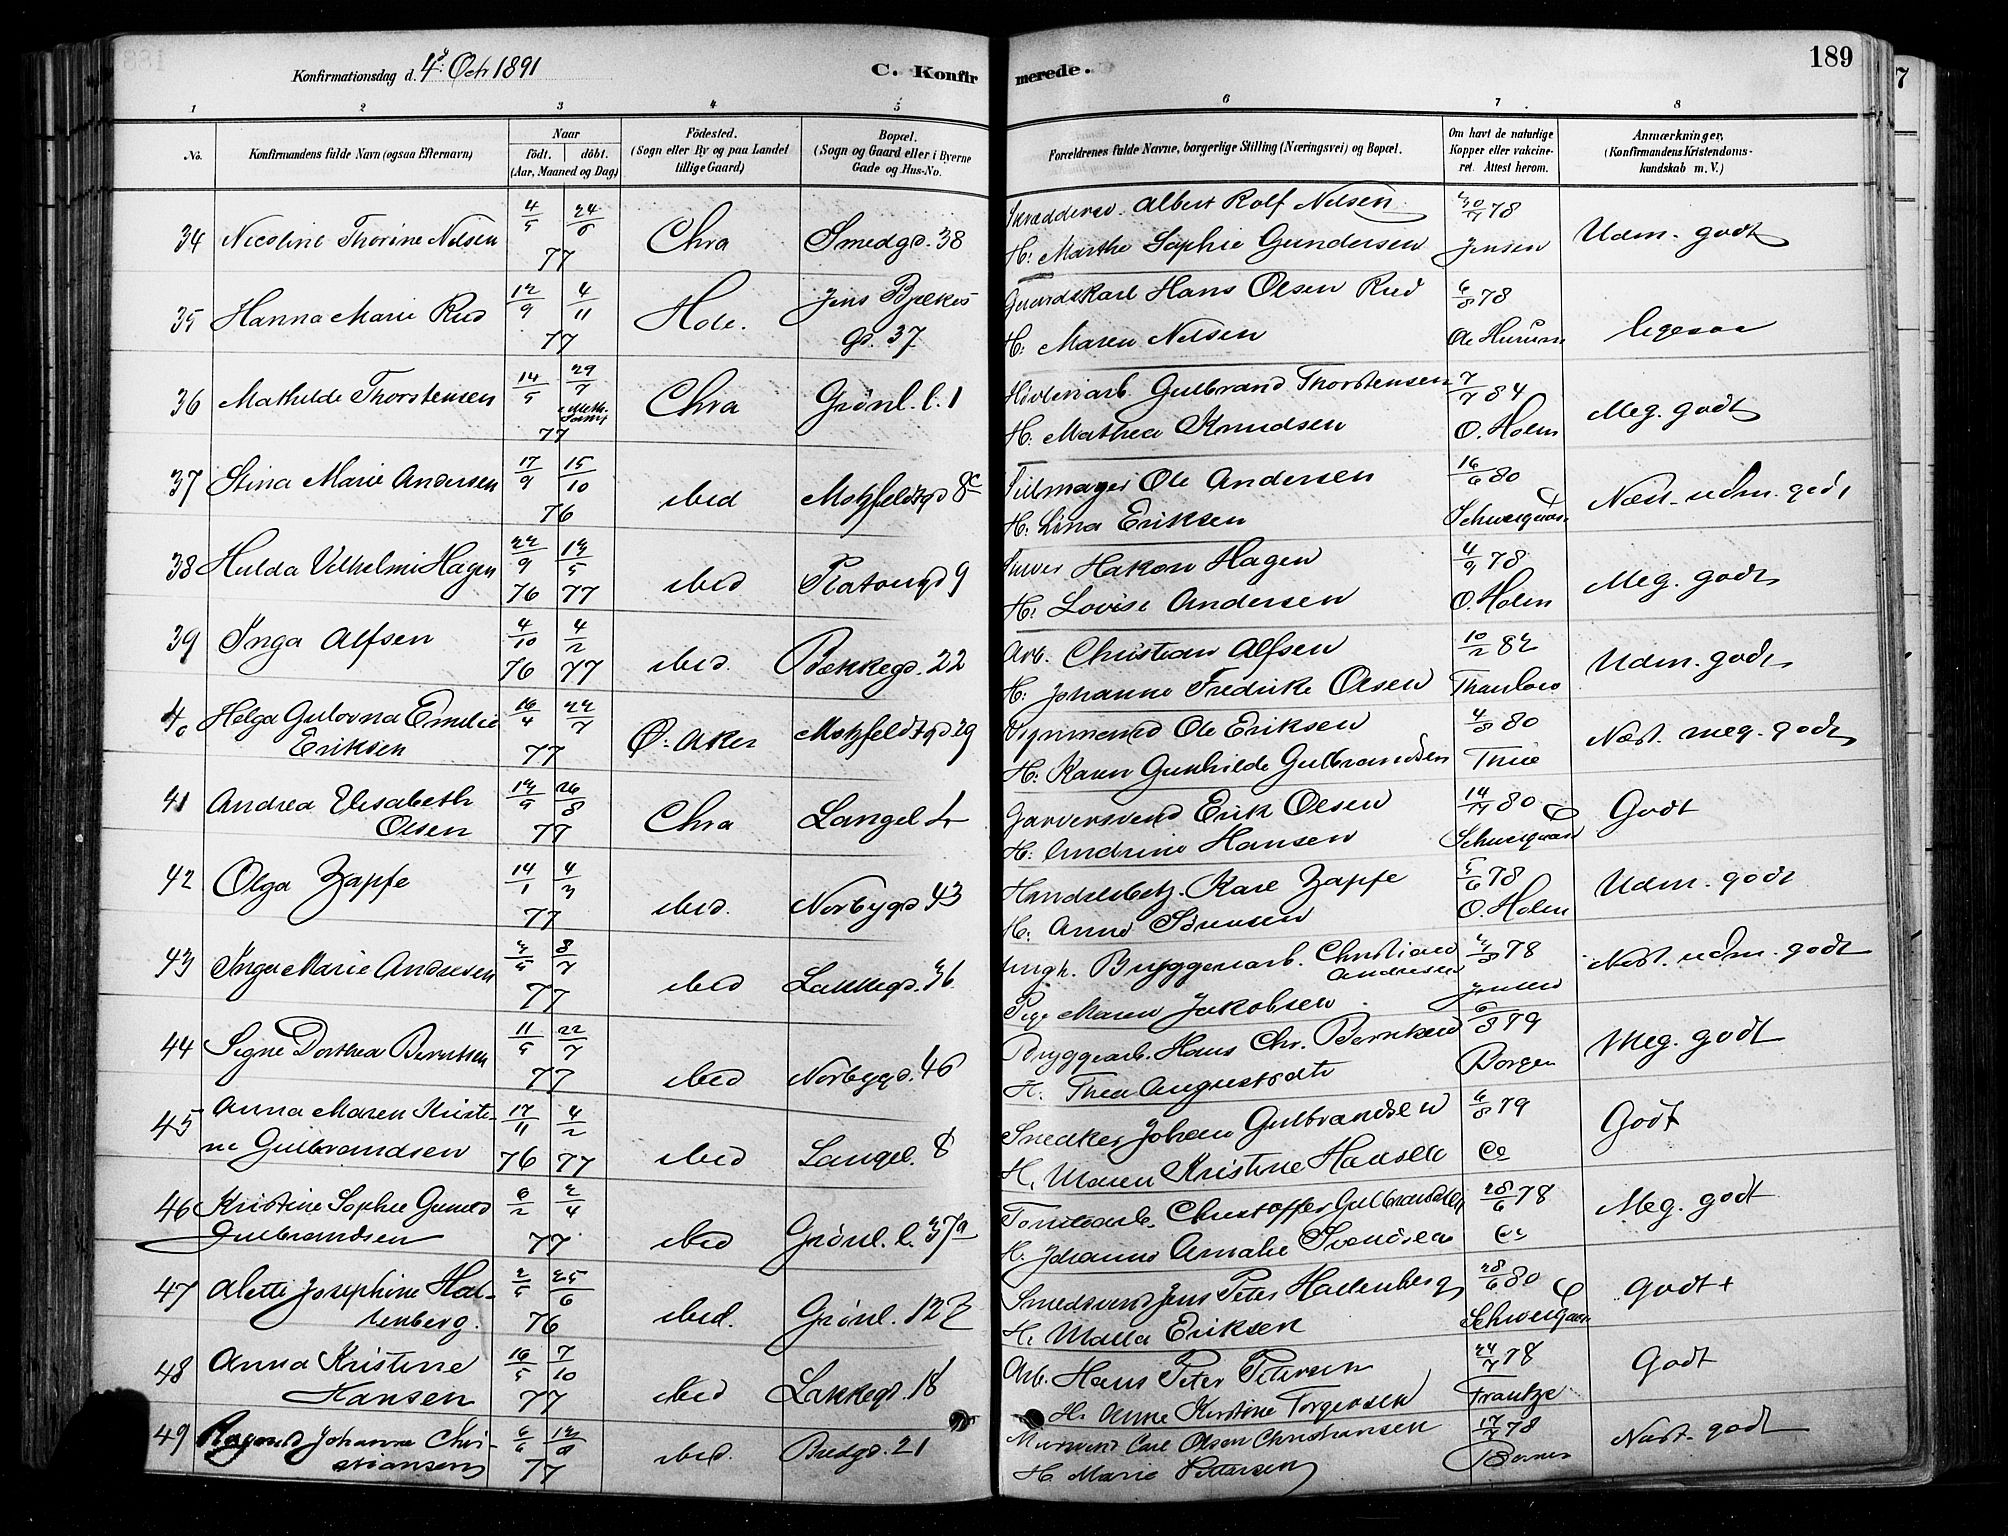 Konfirmationsdag d. 4de Octr 1891
C. Konfirmerede.
189
1 2 3 4 5 6 7 8
No.
Konfirmandens fulde Navn (ogsaa Efternavn)
Naar
født. døbt.
(Aar, Maaned og Dag)
Födested.
(Sogn eller By og paa Landet
tillige Gaard)
Bopæl.
(Sogn og Gaard eller i Byerne
Gade og Hus-No.
Forældrenes fulde Navne, borgerlige Stilling (Næringsvei) og Bopæl.
Om havt de naturlige
Kopper eller vakcine-
ret. Attest herom.
Anmærkninger.
(Konfirmandens Kristendoms-
kundskab m. V.)
34 Nicoline Thorine Nelsen 4/5 24/6 77 Chra Smedgd. 38
Albert Rolf Nelsen 30/7 78
H. Marthe Sophie Gundersen Jensen Udm. godt
35 Hanna Marie Rud 12/9 4/11 77 Hole. Jens Bjelkes
gd. 37
Gaardskarl Hans Olsen Rud 6/8 78
H. Maren Nelsen ligesaa
36 Mathilde Thorstensen 14/5 29/7 77 Chra Grønl. l. 1
Gulbrand Thorstensen 7/7 84
H. Mathea Knudsen O. Holm Meg. godt
37 Stina Marie Andersen 17/9 15/10 76 ibid Motzfeldtgd 8c
Ole Andersen 16/6 80
H. Lina Eriksen Schweigaard Næst. udm. godt
38 Hulda Vilhelmi Hagen 22/9 76 13/5 77 ibid Platousgd 9
Hakon Hagen 4/9 78
H. Lovise Andersen O. Holm Meg. godt
39 Inga Alfsen 4/10 76 4/2 77 ibid. Bakkegd. 22
Arb. Christian Alfsen 10/2 82
H. Johanne Fredrike Olsen Thaulow Udm. godt
40 Helga Gulovna Emilie
Eriksen 16/4 22/7 77 Ø. Aker Motzfeldtgd 29
Ole Eriksen 4/8 80
H. Karen Gunhilde Gulbrandsen Thue Næst. meg. godt
41 Andrea Elisabeth
Olsen 77 Chra Langel. 4
Garversvend Erik Olsen 14/7 80
H. Andrine Hansen Schweigaard Godt
42 Olga Zapfe 14/1 4/3 77 ibid. Norbygd 43
Karl Zapfe 5/6 78
H. Anne Sørensen O. Holm Udm. godt
43 Inga Marie Andresen 8/7 77 ibid Lakkegd. 36
Ungk. Bryggeriarb. Christian
Andresen 78
Pige Maren Jakobsen Jensen Næst. udm. godt
44 Signe Dorthea Berntsen 11/5 22/7 77 ibid Norbygd. 46
Bryggearb. Hans Chr. Berntsen 79
H. Thea Borgen Meg. godt
45 Anna Maren Kristi-
ne Gulbrandsen 17/11 76 4/2 77 ibid Langel. 8
Snedker Johan Gulbrandsen 6/8 79
H. Maren Kristine Hansen Godt
46 Kristine Sophie
Gulbrandsen 6/2 2/4 77 ibid Grønl. l. 37a
Christoffer Gulbrandsen 28/6 78
H. Johanne Amalie Svendsen Meg. godt
47 Alette Josephine Hal-
lenberg. 2/5 25/6 76 ibid. Grønl. 12
Smedsvend Jens Peter Hallenberg 28/6 80
H. Malla Eriksen Schweigaard Godt +
48 Anna Kristine
Hansen 16/5 7/10 77 ibid Lakkegd. 18
Arb. Hans Peter Petersen 24/7 78
H. Anne Kirstine Torgersen Frantze Godt
49 Johanne Chri-
stiansen 77 ibid. Bredgd. 21
Mursvend Carl Olsen Christiansen 17/7 78
H. Marie Pettersen Næst. godt